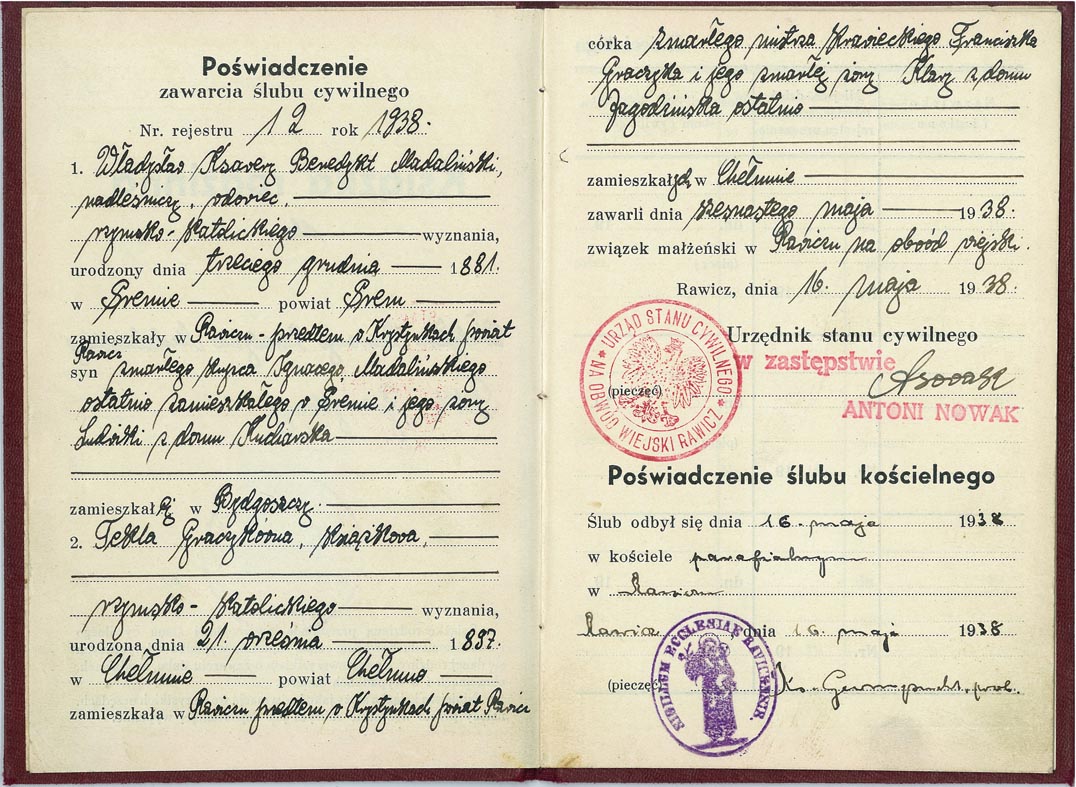 Poświadczenie
zawarcia ślubu cywilnego
Nr. rejestru 12 rok 1938.
1. Władysław Ksawery Benedykt Madaliński,
nadleśniczy, wdowiec,
rzymsko-katolickiego wyznania,
urodzony dnia trzeciego grudnia 1881.
w Śremie powiat Śrem
zamieszkały w Rawiczu - przedtem w Krystynkach powiat
Rawicz
syn zmarłego kupca Ignacego Madalińskiego
ostatnio zamieszkałego w Śremie i jego żony
Ludwiki z domu Kucharska
zamieszkałej w Bydgoszczy
2. Tekla Graczykówna, książkowa,
rzymsko-katolickiego wyznania,
urodzona dnia 21. września 1897.
w Chełmnie powiat Chełmno
zamieszkała w Rawiczu przedtem w Krystynkach powiat Rawicz
córka zmarłego mistrza krawieckiego Franciszka
Graczyka i jego zmarłej żony Klary z domu
Jagodzińska ostatnio
zamieszkałych w Chełmnie
zawarli dnia szesnastego maja 1938.
związek małżeński w Rawiczu na obwód wiejski.
Rawicz, dnia 16. maja 1938.
Urzędnik stanu cywilnego
w zastępstwie
ANTONI NOWAK
(pieczęć)
URZĄD STANU CYWILNEGO
NA OBWÓD WIEJSKI RAWICZ
Poświadczenie ślubu kościelnego
Ślub odbył się dnia 16. maja 1938
w kościele parafialnym
w Rawiczu
Rawicz dnia 16. maja 1938
(pieczęć) Ks. prob.
SIGILLUM ECCLESIAE RAVICENSIS.